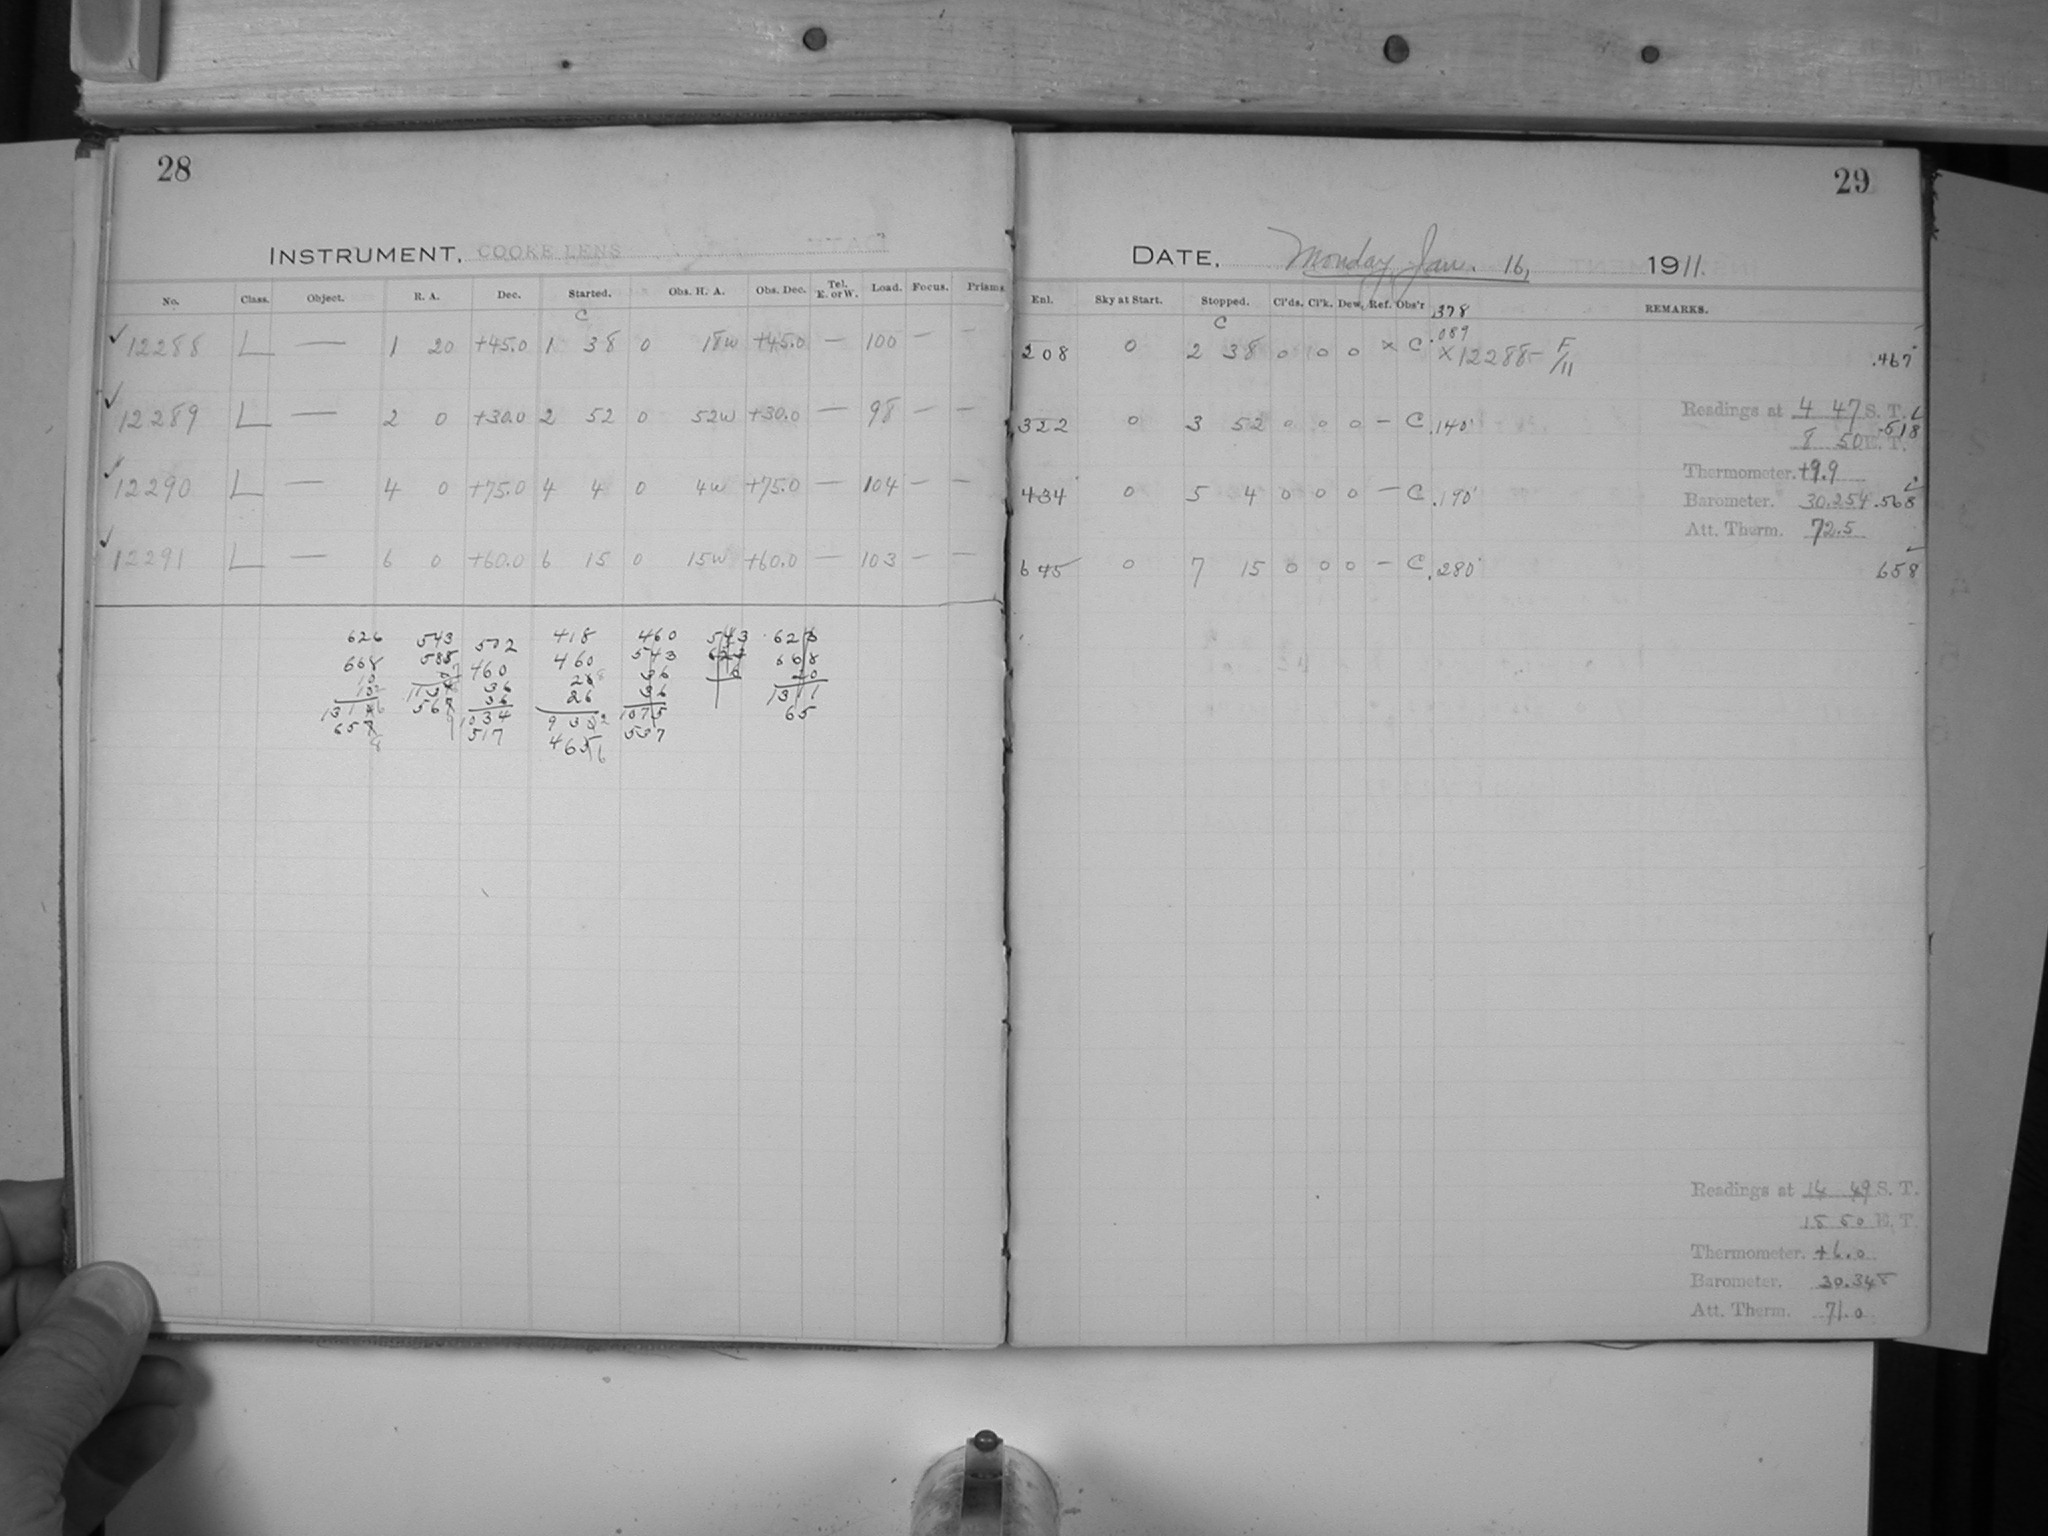 28
INSTRUMENT. COOKE LENS
No. Class. Object. R. A. Dec. Started. Obs. H. A. Obs. Dec. Tel. E. or W. Load. Focus. Prisms
C
✓ 12288 L — 1 20 +45.0 1 38 0 18w +45.0 — 100 — —
✓ 12289 L — 2 0 +30.0 2 52 0 52w +30.0 — 98 — —
✓ 12290 L — 4 0 +75.0 4 4 0 4w +75.0 — 104 — —
✓ 12291 L — 6 0 +60.0 6 15 0 15w +60.0 — 103 — —
626 543 502 418 460 543
668 588 460 460 543 608
36 26 36 20
36 26 36 1311
1034 1075 65
517 537
29
DATE. Monday, Jan. 16, 1911.
Enl. Sky at Start. Stopped. Cl'ds. Cl'k. Dew. Ref. Obs'r REMARKS.
C .378
.089
208 0 2 38 0 0 0 × C × 12288 - F/11 .467
322 0 3 52 0 0 0 — C .140 .518
434 0 5 4 0 0 0 — C .190 .568
645 0 7 15 0 0 0 — C .280 658
Readings at 4 47 S. T.
8 50 E. T.
Thermometer. +9.9
Barometer. 30.254
Att. Therm. 72.5
Readings at 14 49 S. T.
18 50 E. T.
Thermometer. +6.0
Barometer. 30.348
Att. Therm. 71.0